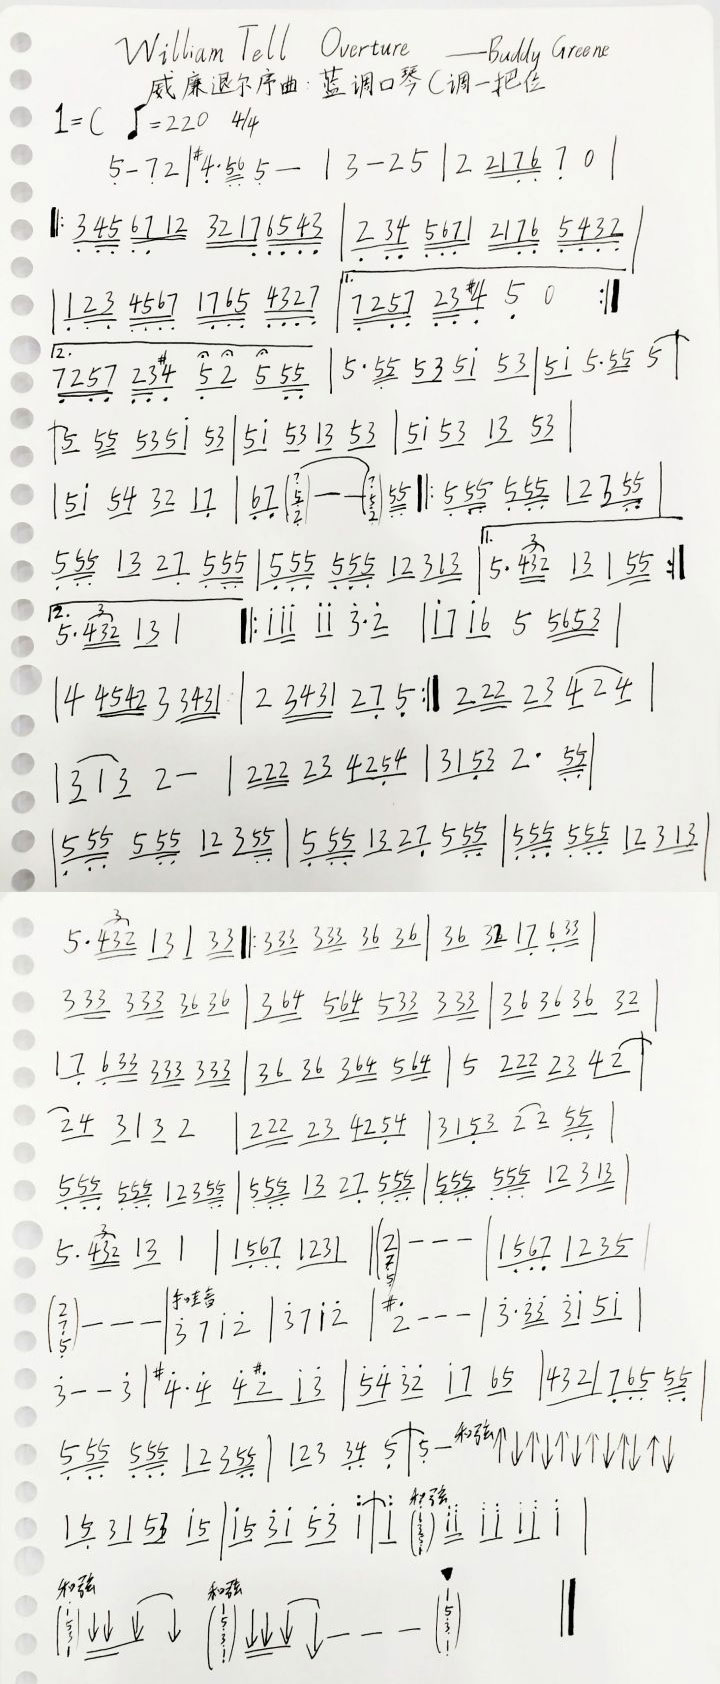 William Tell Overture ——Buddy Greene
威廉退尔序曲:蓝调口琴C调一把位
1=C ♩=220 4/4
5-72|#4·56 5— |3-25|2 2176 7 0|
‖: 345 6712 3217 6543 | 2 34 5671 2176 5432 |
|123 4567 1765 4327 |1. 7257 23#4 5 0 :‖
2. 7257 23#4 5 2 5 55 | 5·55 53 51 53|51 5·55 5
5 55 5351 53|51 53 13 53 |51 53 13 53 |
|51 54 32 17 | 67 (752) —— (752) 55 ‖: 555 555 12 355 |
555 13 27 555 |555 555 12 313 |1. 5·432 13 1 55 :‖
2. 5·432 13 1 ‖: 111 11 3·2 |17 16 5 5653 |
|4 4542 3 3431 | 2 3431 27 5 :‖ 222 23 424 |
|313 2— |222 23 4254 |3153 2· 55|
|555 555 12 355 | 555 13 27 555 |555 555 12 313|
5·432 13 1 33 ‖: 333 333 36 36| 36 32 17 633 |
333 333 36 36 |364 564 533 333 |36 36 36 32 |
17 633 333 333 |36 36 364 564 | 5 222 23 42
24 313 2 |222 23 4254 |3153 22 55 |
555 555 12355 |555 13 27 555 |555 555 12 313 |
5·432 13 1 | 1567 1231 ‖(275) --- |1567 1235 |
(275) --- | 手哇音 3 7 1 2 |3712 |#2 --- |3·33 31 51 |
3--3 |#4·4 4#2 13 |54 32 17 65 |4321 765 55 |
555 555 12355 | 123 34 5 5— 和弦↑↓↑↓↑↓↑↓↑↓↑↓
15 31 53 15 |15 31 53 1 1 和弦 11 11 11 1 |
和弦 ↓↓ ↓ ↓ 和弦 ↓↓↓ ↓ --- (1531) ‖